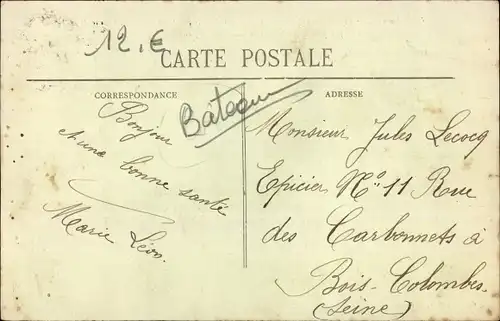 12.€
CARTE POSTALE
CORRESPONDANCE
ADRESSE
Bateau
Bonjour
et une bonne santé
Marie Léon.
Monsieur Jules Lecocq
Epicier N° 11 Rue
des Carbonnets à
Bois-Colombes.
(Seine)